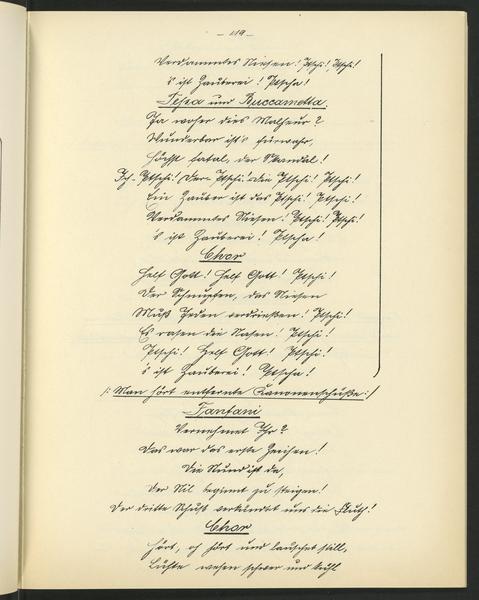 - 119 -
Verdammtes Niesen! Ptschi! Ptschi!
's ist Zauberei! Ptscha!
Tessa und Buccametta.
Ja woher dies Malheur?
Wunderbar ist's fürwahr,
Höchst fatal, der Skandal!
Ich - Ptschi! Der - Ptschi! Die Ptschi! Ptschi!
Ein Zauber ist das Ptschi! Ptschi!
Verdammtes Niesen! Ptschi! Ptschi!
's ist Zauberei! Ptscha!
Chor
Helf Gott! Helf Gott! Ptschi!
Der Schnupfen, das Niesen
Muß Jeden verdrießen! Ptschi!
Es rasen die Nasen! Ptschi!
Ptschi! Helf Gott! Ptschi!
's ist Zauberei! Ptscha!
/: Man hört entfernte Kanonenschüße :/
Fanfani
Vernehmet Ihr?
Das war das erste Zeichen!
Die Stund ist da,
Der Nil beginnt zu steigen!
Der dritte Schuß verkündet uns die Fluth!
Chor
Hört, o hört und lauschet still,
Lüfte wehen schwer und kühl